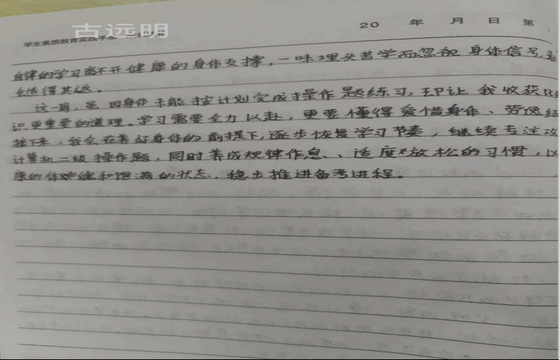 古远明
学生素质教育实践手册
20 年 月 日 第
自律的学习离不开健康的身体支撑，一味埋头苦学而忽视身体信号，
会适得其反。
这一周，虽因身体未能按计划完成操作题练习，却让我收获比
识更重要的道理。学习需要全力以赴，更要懂得爱惜身体、劳逸结
接下来，我会在养好身体的前提下，逐步恢复学习节奏，继续专注攻
计算机二级操作题，同时养成规律作息、适度放松的习惯，以
康的体魄和饱满的状态，稳步推进备考进程。